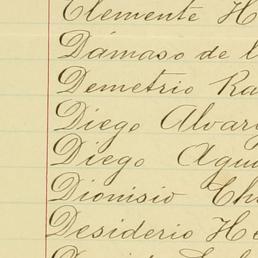 Clemente H
Dámaso de l
Demetrio Ra
Diego Alvar
Diego Agu
Dionisio Ch
Desiderio He